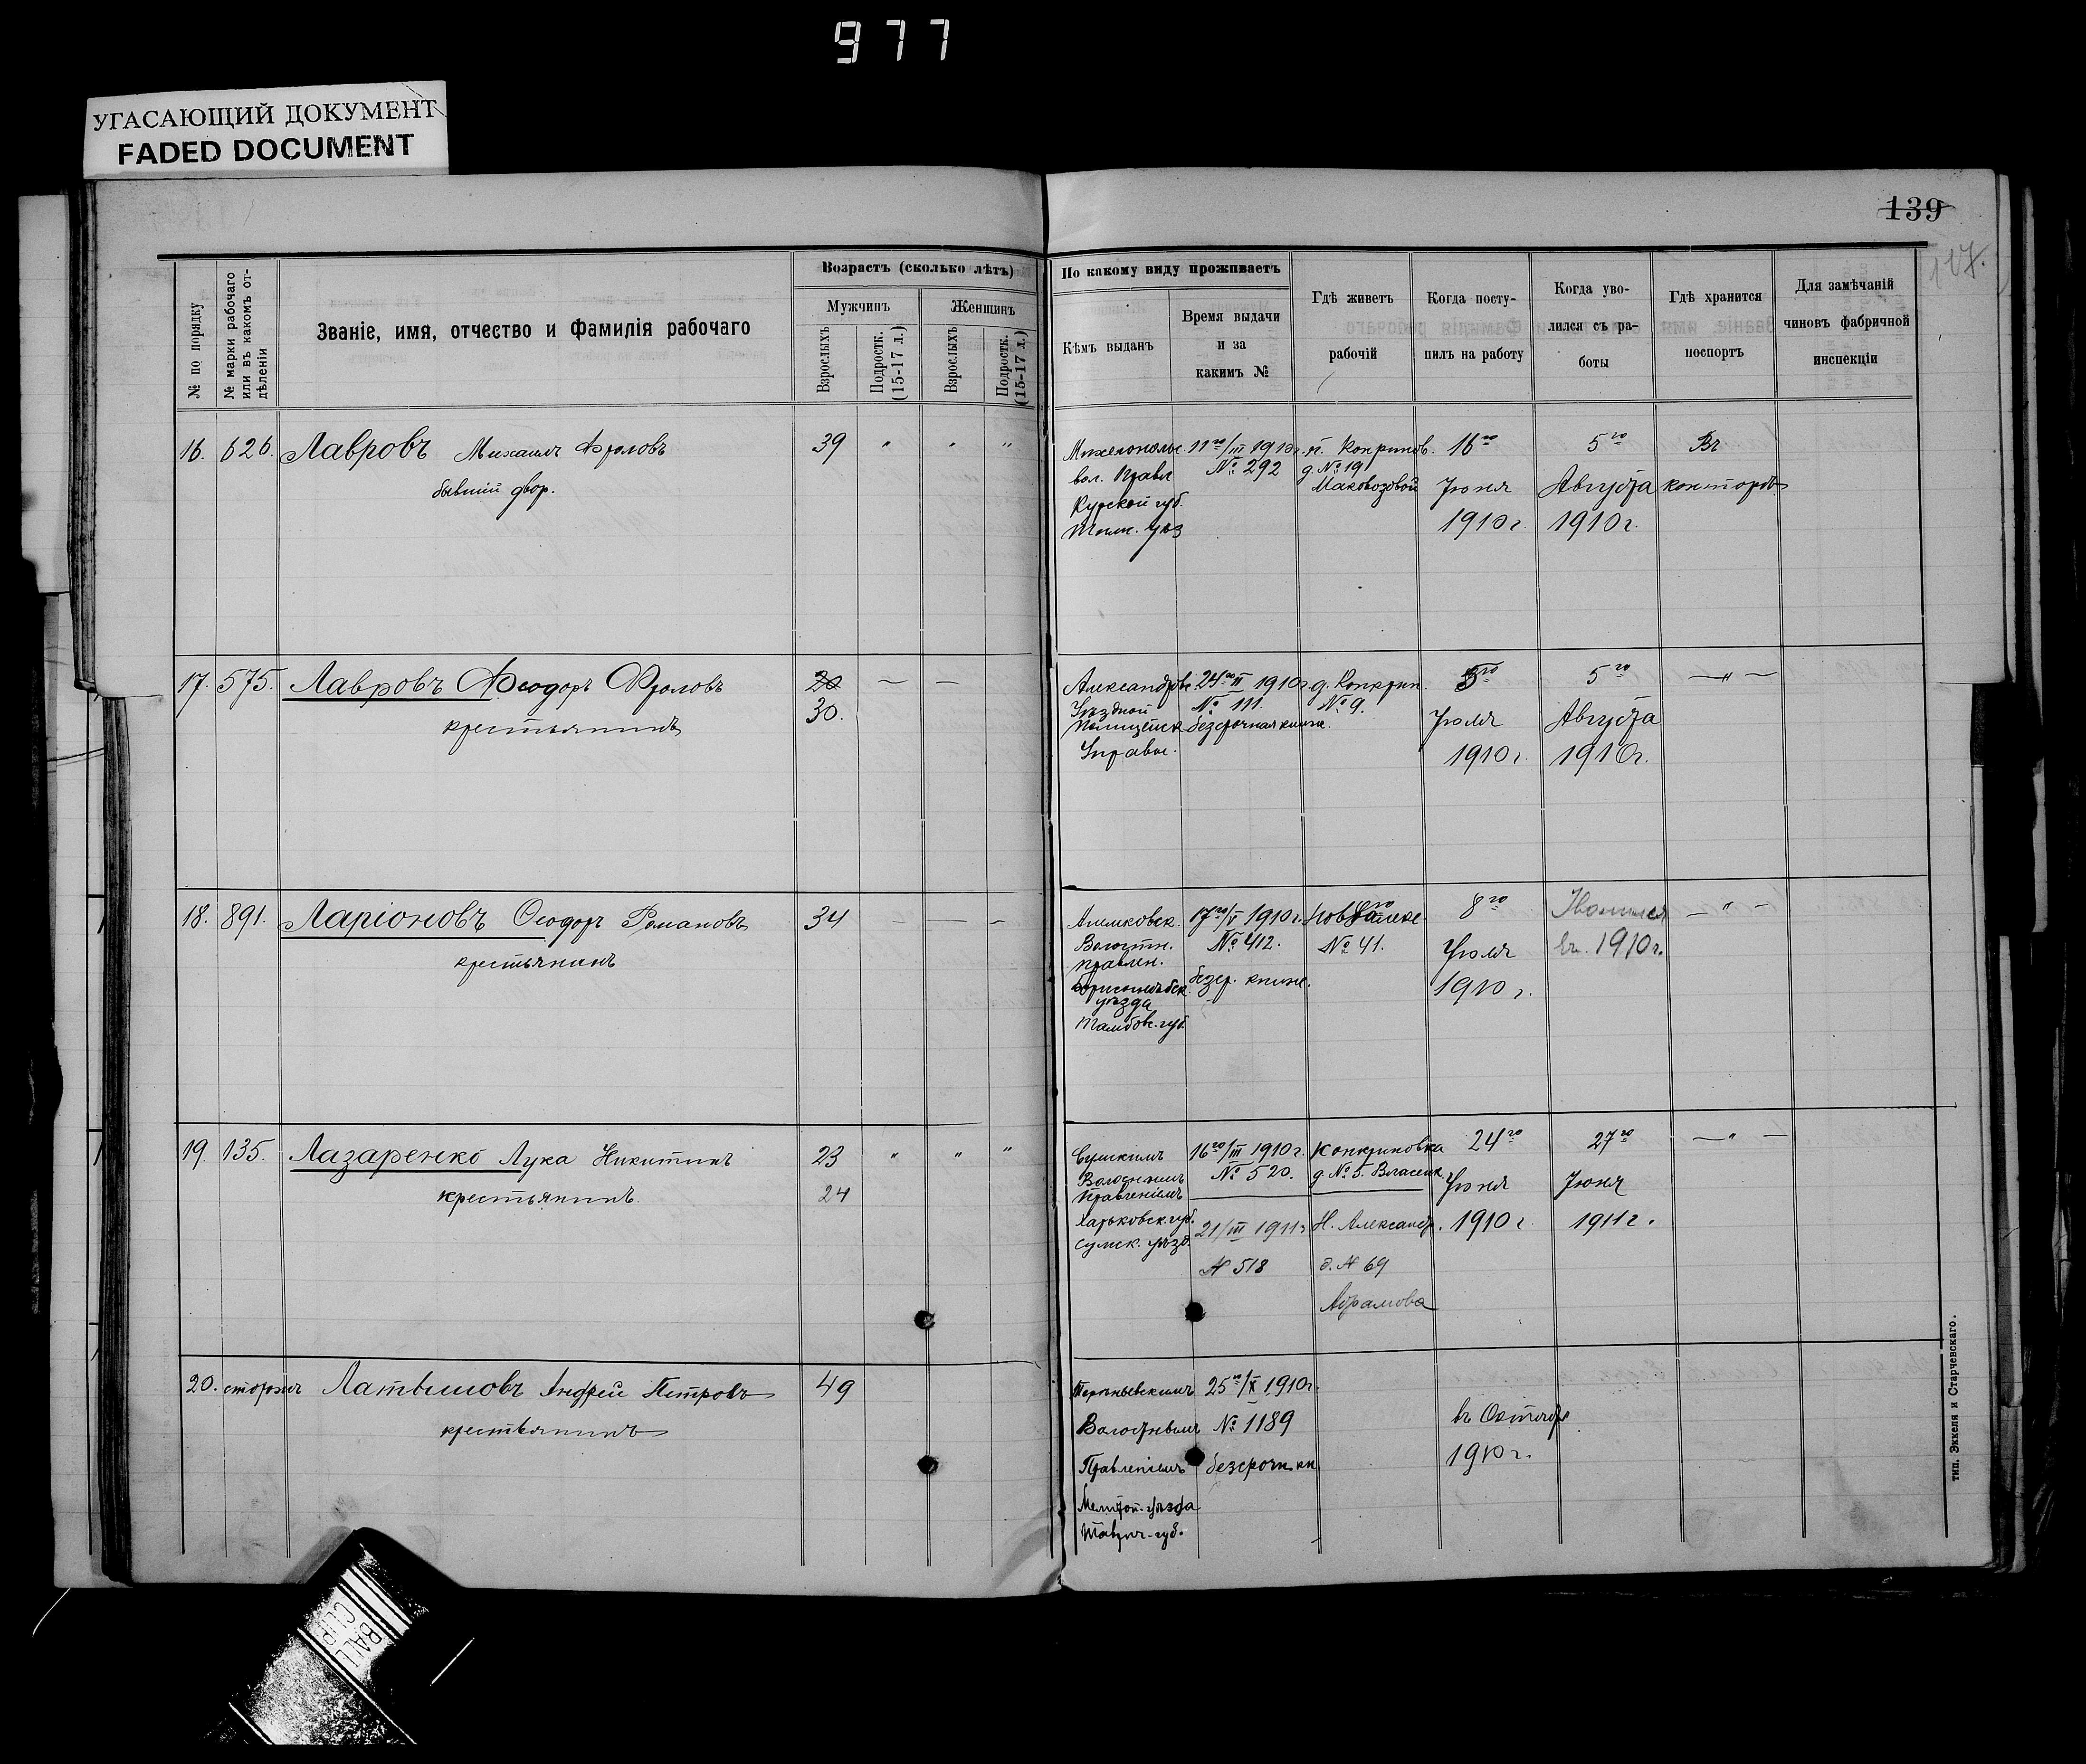 977
УГАСАЮЩИЙ ДОКУМЕНТ
FADED DOCUMENT
139
127.
№ по порядку
№ марки рабочаго или въ какомъ от-дѣленіи
Званіе, имя, отчество и фамилія рабочаго
Возрастъ (сколько лѣтъ)
Мужчинъ
Женщинъ
Взрослыхъ
Подростк. (15-17 л.)
Взрослыхъ
Подростк. (15-17 л.)
По какому виду проживаетъ
Кѣмъ выданъ
Время выдачи
и за
какимъ №
Гдѣ живетъ
рабочій
Когда посту-
пилъ на работу
Когда уво-
лился съ ра-
боты
Гдѣ хранится
поспортъ
Для замѣчаній
чиновъ фабричной
инспекціи
16. 626. Лавровъ Михаилъ Фроловъ 39 " " "
бывшій двор.
вол. Правл
Курской губ.
11го/III 1910г.
№ 292
д. № 19
Маковозовой
16го
Іюня
1910г.
5го
Августа
1910г.
Въ
конторѣ
17. 575. Лавровъ Ѳеодоръ Фроловъ 20 — —
крестьянинъ 30.
Александров
Уѣздной
Полицейск
Управы.
1910г.
№ 111.
безсрочная книж.
д. Конкрин.
№ 9.
5го
Іюля
1910г.
5го
Августа
1910г.
—"—
18. 891. Ларіоновъ Ѳеодоръ Романовъ 34 — — –
крестьянинъ
Волостн.
Правлен.
Борисоглѣбск.
уѣзда
Тамбов. губ.
17го/V 1910г.
№ 412.
безср. книж.
№ 41.
8го
Іюля
1910г.
въ 1910г.
—"—
19. 135. Лазаренко Лука Никитинъ 23 " " "
крестьянинъ. 24
Сумскимъ
Волостнымъ
Правленіемъ
Харьковск. губ.
Сумск. уѣзд.
16го/III 1910г.
№ 520.
21/III 1911г
№ 518
Конкриновка
д. № 5. Власенк.
Н. Александр.
д. № 69
Абрамова
24го
Іюня
1910г.
27го
Іюня
1911г.
—"—
20. сторожъ Латышовъ Андрей Петровъ 49
крестьянинъ
Волостнымъ
Правленіемъ
Мелитоп. уѣзда
Таврич. губ.
25го/X 1910г.
№ 1189
безсрочн кн
въ Октябр
1910г.
тип. Эккеля и Старчевскаго.
BALL
CLIP